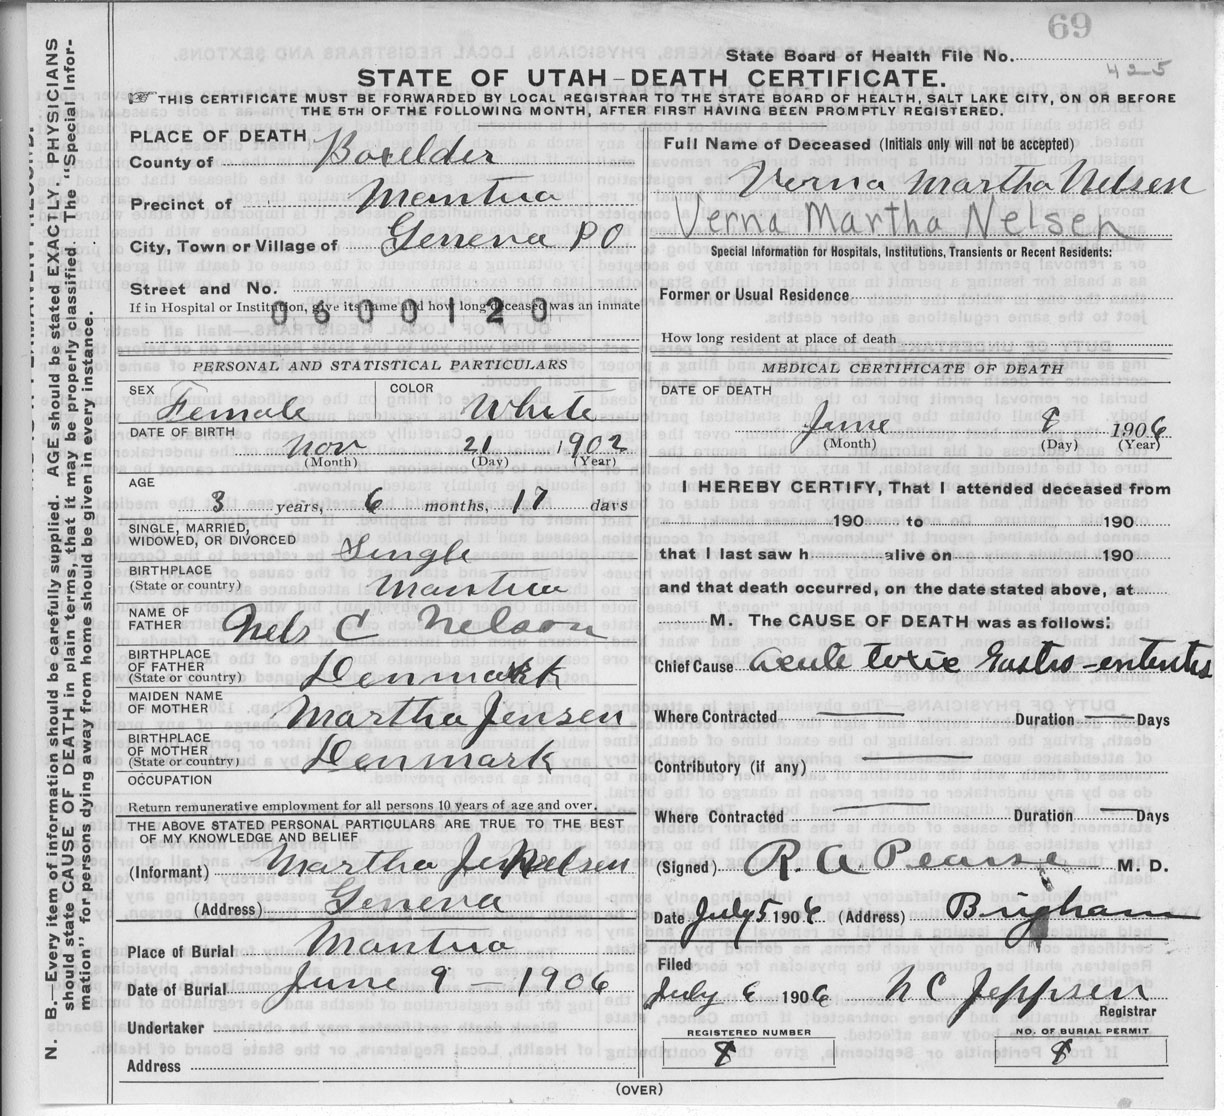 69
State Board of Health File No.
425
STATE OF UTAH–DEATH CERTIFICATE.
THIS CERTIFICATE MUST BE FORWARDED BY LOCAL REGISTRAR TO THE STATE BOARD OF HEALTH, SALT LAKE CITY, ON OR BEFORE
THE 5TH OF THE FOLLOWING MONTH, AFTER FIRST HAVING BEEN PROMPTLY REGISTERED.
N. B.—Every item of information should be carefully supplied. AGE should be stated EXACTLY. PHYSICIANS
should state CAUSE OF DEATH in plain terms, that it may be properly classified. The "Special Infor-
mation" for persons dying away from home should be given in every instance.
PLACE OF DEATH
County of Boxelder
Precinct of Mantua
City, Town or Village of Geneva P O
Street and No.
If in Hospital or Institution, give its name and how long deceased was an inmate
0600120
PERSONAL AND STATISTICAL PARTICULARS
SEX Female
COLOR White
DATE OF BIRTH
Nov 21 1902
(Month) (Day) (Year)
AGE
3 years, 6 months, 17 days
SINGLE, MARRIED,
WIDOWED, OR DIVORCED Single
BIRTHPLACE
(State or country) Mantua
NAME OF
FATHER Nels C Nelson
BIRTHPLACE
OF FATHER
(State or country) Denmark
MAIDEN NAME
OF MOTHER Martha Jensen
BIRTHPLACE
OF MOTHER
(State or country) Denmark
OCCUPATION
Return remunerative employment for all persons 10 years of age and over.
THE ABOVE STATED PERSONAL PARTICULARS ARE TRUE TO THE BEST
OF MY KNOWLEDGE AND BELIEF
(Informant) Martha Nelsen
(Address) Geneva
Place of Burial Mantua
Date of Burial June 9 – 1906
Undertaker
Address
Full Name of Deceased (Initials only will not be accepted)
Verna Martha Nelsen
Verna Martha Nelsen
Special Information for Hospitals, Institutions, Transients or Recent Residents:
Former or Usual Residence
How long resident at place of death
MEDICAL CERTIFICATE OF DEATH
DATE OF DEATH
June 8 1906
(Month) (Day) (Year)
I HEREBY CERTIFY, That I attended deceased from
190 to 190
that I last saw h alive on 190
and that death occurred, on the date stated above, at
M. The CAUSE OF DEATH was as follows:
Chief Cause acute toxic Gastro-enteritis
Where Contracted — Duration — Days
Contributory (if any) —
Where Contracted — Duration — Days
(Signed) R. A. Pearse M. D.
Date July 5 1906 (Address) Brigham
Filed
July 6 1906 N C Jeppsen
Registrar
REGISTERED NUMBER
8
NO. OF BURIAL PERMIT
8
(OVER)